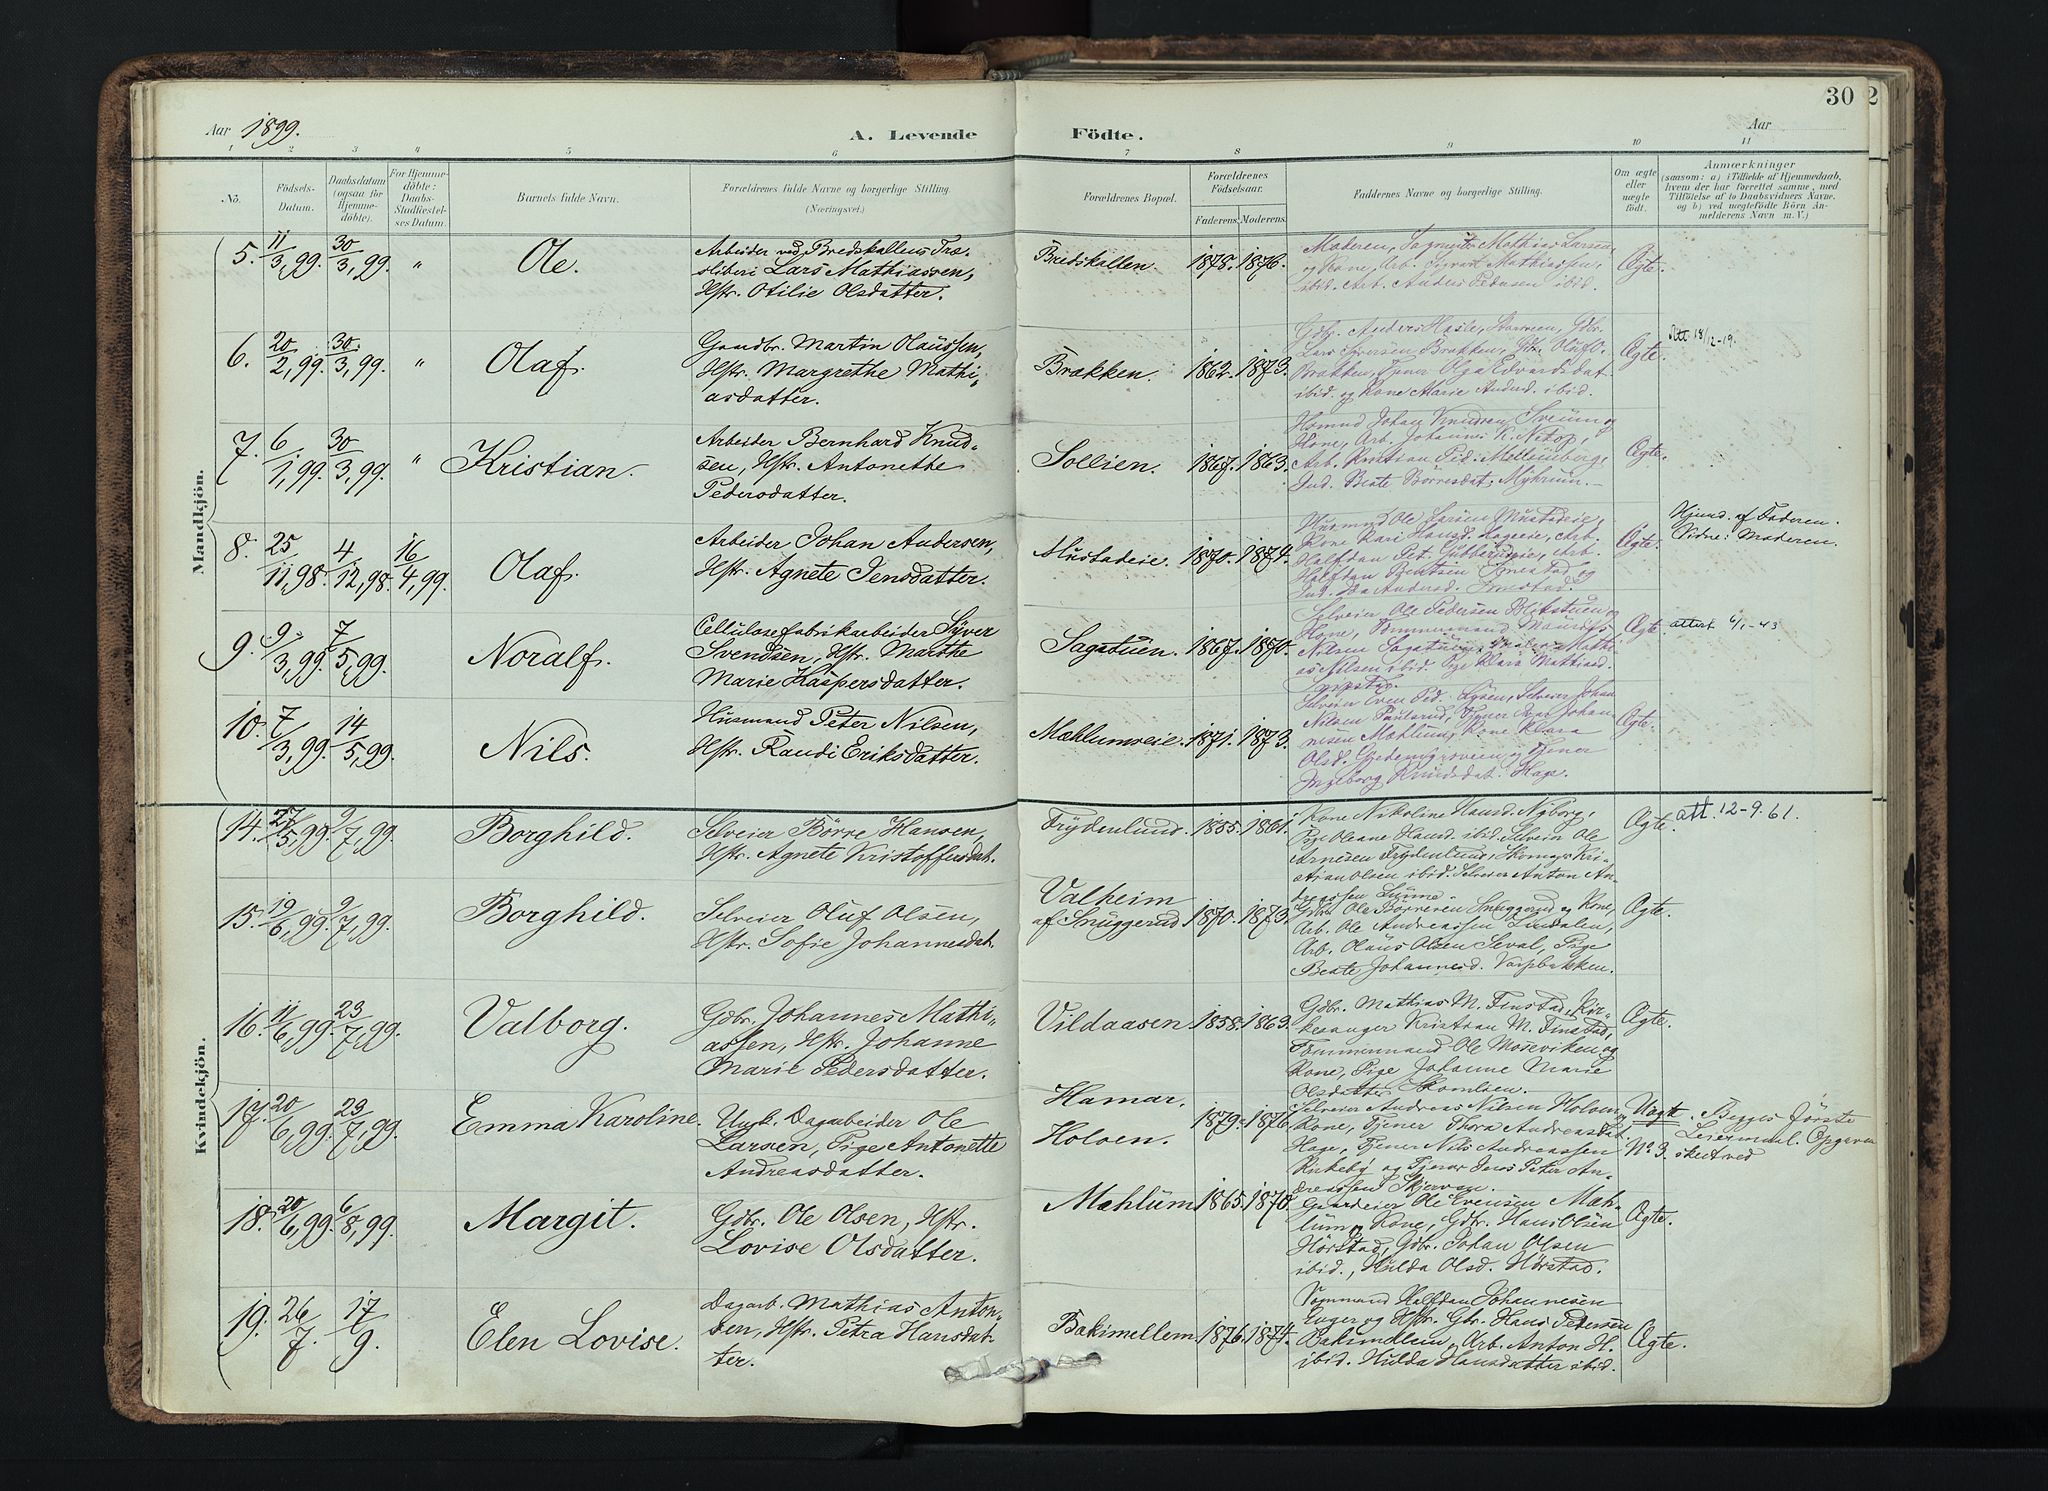 30 2
Aar 1899.
A. Levende Födte.
Aar
1 2 3 4 5 6 7 8 9 10 11
No.
Födsels-
Datum.
Daabsdatum
(ogsaa for
Hjemme-
döbte).
For Hjemme-
döbte:
Daabs-
Stadfæstel-
ses Datum.
Barnets fulde Navn.
Forældrenes fulde Navne og borgerlige Stilling.
(Næringsvei.)
Forældrenes Bopæl.
Forældrenes
Födselsaar.
Faderens. Moderens.
Faddernes Navne og borgerlige Stilling.
Om ægte
eller
uægte
födt.
Anmærkninger
(saasom: a) i Tilfælde af Hjemmedaab,
hvem der har forrettet samme, med
Tilföielse af to Daabsvidners Navne.
og b) ved uægtefödte Börn An-
melderens Navn m. V.)
Mandkjön.
5. 11/3,99. 30/3,99. " Ole.
Arbeider ved Bredskallens Træ-
sliberi Lars Mathiassen,
Hstr. Otilie Olsdatter.
Bredskallen. 1878. 1876.
Moderen, Sagmester Mathias Larsen,
og Kone, Arb. Sigvart Mathiassen,
ibid. Arb. Anders Pedersen ibid.
Ægte.
6. 20/2,99. 30/3,99. " Olaf.
Gaardbr. Martin Olaussen,
Hstr. Margrethe Mathi-
asdatter.
Brækken. 1862. 1873.
Gdbr. Anders Hasle, Gdbr.
Lars Iversen Brækken, Oluf O.
Brækken, Tjener Olga Edvardsdat.
ibid. og Kone Marie Andersd. ibid.
Ægte.
Att 18/12-19.
7. 6/1,99. 30/3,99. " Kristian.
Arbeider Bernhard Knud-
sen, Hstr. Antonethe
Pedersdatter.
Sollien. 1867. 1863.
Johan Knudsen Sveum og
Kone, Arb. Johannes K.
Arb. Kristian Ped.
Ind. Beate Börresdat. Myhrum.
Ægte.
8. 25/11,98. 4/12,98. 16/4,99. Olaf.
Arbeider Johan Andersen,
Hstr. Agnete Jensdatter.
Mustadeie. 1870. 1874.
Husmand Ole Larsen Mustadeie,
Kone Kari Hansd. Hageeie, Arb.
Halfdan Pet. Arb.
Halfdan Berntsen
Ind. Andersd.
Ægte.
Hjemd. af Faderen.
Vidne: Moderen.
9. 9/3,99. 7/5,99. Noralf.
Cellulosefabrikarbeider Syver
Svendsen, Hstr. Marthe
Marie Kaspersdatter.
Sagstuen. 1867. 1870.
Selveier Ole Pedersen
Kone, Tømmermand
Nilsen Sagstuen, Mathi-
as Nilsen ibid. Pige Klara Mathiasd.
Ægte.
attest 6/1-43
10. 7/3,99. 14/5,99. Nils.
Husmand Peter Nilsen,
Hstr. Randi Eriksdatter.
Mæhlumseie. 1871. 1873.
Selveier Even Ped. Selveier Johan
Nilsen Paulsrud, Tjener Johan-
nesen Mæhlum, Kone Klara
Olsd. og Tjener
Ingeborg Knudsdat. Hage.
Ægte.
Kvindekjön.
14. 27/5,99. 9/7,99. Borghild.
Selveier Börre Hansen,
Hstr. Agnete Kristoffersdat.
Frydenlund. 1855. 1861.
Kone Nikoline Hansd. Nyborg,
Pige Oleane Hansd. ibid. Selveier Ole
Arnesen Frydenlund, Skomag. Kri-
stian Olsen ibid. Selveier Anton An-
dreassen
Ægte.
att. 12-9.61.
15. 19/6,99. 9/7,99. Borghild.
Selveier Oluf Olsen,
Hstr. Sofie Johannesdat.
Valheim
af Snuggerud 1870. 1873.
Gdbr. Ole Börresen Snuggerud og Kone,
Arb. Ole Andreassen Lundalen,
Arb. Olaus Olsen Seval, Pige
Beate Johannesd. Vaspbakken.
Ægte.
16. 11/6,99. 23/7,99. Valborg.
Gdbr. Johannes Mathi-
assen, Hstr. Johanne
Marie Pedersdatter.
Vildaasen 1858. 1863.
Gdbr. Mathias M. Finstad, Kir-
kesanger Kristian M. Finstad,
Tömmermand Ole Moseviken og
Kone, Pige Johanne Marie
Olsdatter
Ægte.
17. 20/6,99. 23/7,99. Emma Karoline.
Ungk. Dagarbeider Ole
Larsen, Pige Antonette
Andreasdatter.
Hamar.
Holoen. 1879. 1876.
Selveier Andreas Nilsen Holoen og
Kone, Tjener Thora Andreasdat.
Hage, Tjener Nils Andreassen
Kirkeby og Tjener Jens Peter An-
dreassen Skjervan.
Uægte.
No 3.
Begges förste
Leiermaal. Opgaven
skedt ved
18. 20/6,99. 6/8,99. Margit.
Gdbr. Ole Olsen, Hstr.
Lovise Olsdatter.
Mæhlum 1865. 1870.
Gaardeier Ole Evensen Mæh-
lum og Kone, Gdbr. Hans Olsen
Hörstad, Gdbr. Johan Olsen
ibid., Hulda Olsd. Hörstad.
Ægte.
19. 26/7. 17/9. Elen Lovise.
Dagarb. Mathias Anton-
sen, Hstr. Petra Hansdat-
ter.
Bakimellem 1876. 1874.
Halfdan Johannesen
Enger og Hstr. Gbr. Hans Pedersen
Bakimellem, Arb. Anton H.
ibid. Hulda Hansdatter ibid.
Ægte.